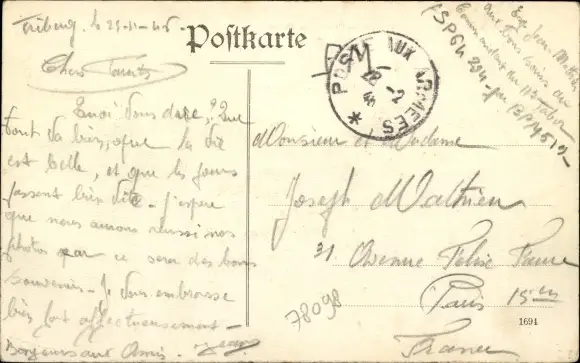 Triberg, le 25-11-45.
Postkarte
Chers Parents
Quoi vous dire, ? Que
tout va bien, que la vie
est belle, et que les jours
passent bien vite - J'espère
que nous aurons réussi nos
photos car ce sera des bons
souvenirs - Je vous embrasse
bien fort affectueusement -
Jean
POSTE AUX ARMEES
Exp. Jean Mathieu
aux bons soins du
Commandant du
SP 
BPM 
Monsieur et Madame
Joseph Mathieu
31 Avenue Félix Faure
Paris 15em
France
78098
1694